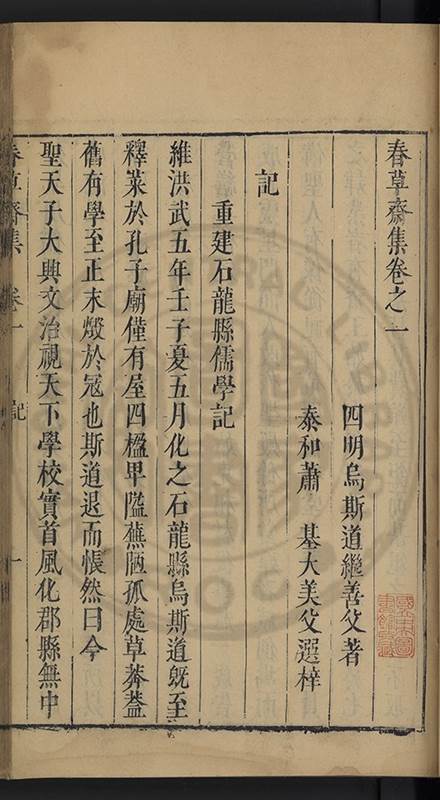 春草齋集卷之一
四明烏斯道繼善父著
泰和蕭 基大美父選梓
記
重建石龍縣儒學記
維洪武五年壬子夏五月化之石龍縣烏斯道既至
釋菜於孔子廟僅有屋四楹卑隘蕪陋孤處草莽葢
舊有學至正末燬於冦也斯道退而悵然曰今
聖天子大興文治視天下學校實首風化郡縣無中
春草齋集 卷一 記 一